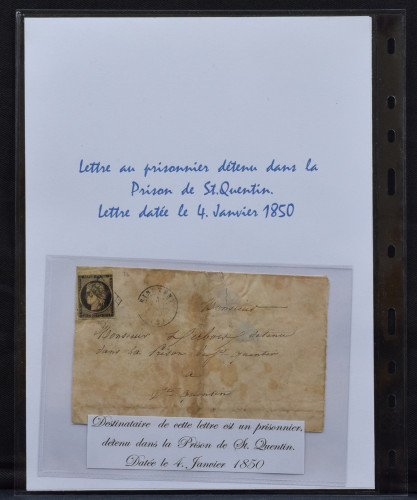 Lettre au prisonnier détenu dans la
Prison de St.Quentin.
Lettre datée le 4. Janvier 1850
Monsieur
Monsieur détenu
dans la Prison quentin
a
St quentin
Destinataire de cette lettre est un prisonnier,
détenu dans la Prison de St. Quentin.
Datée le 4. Janvier 1850